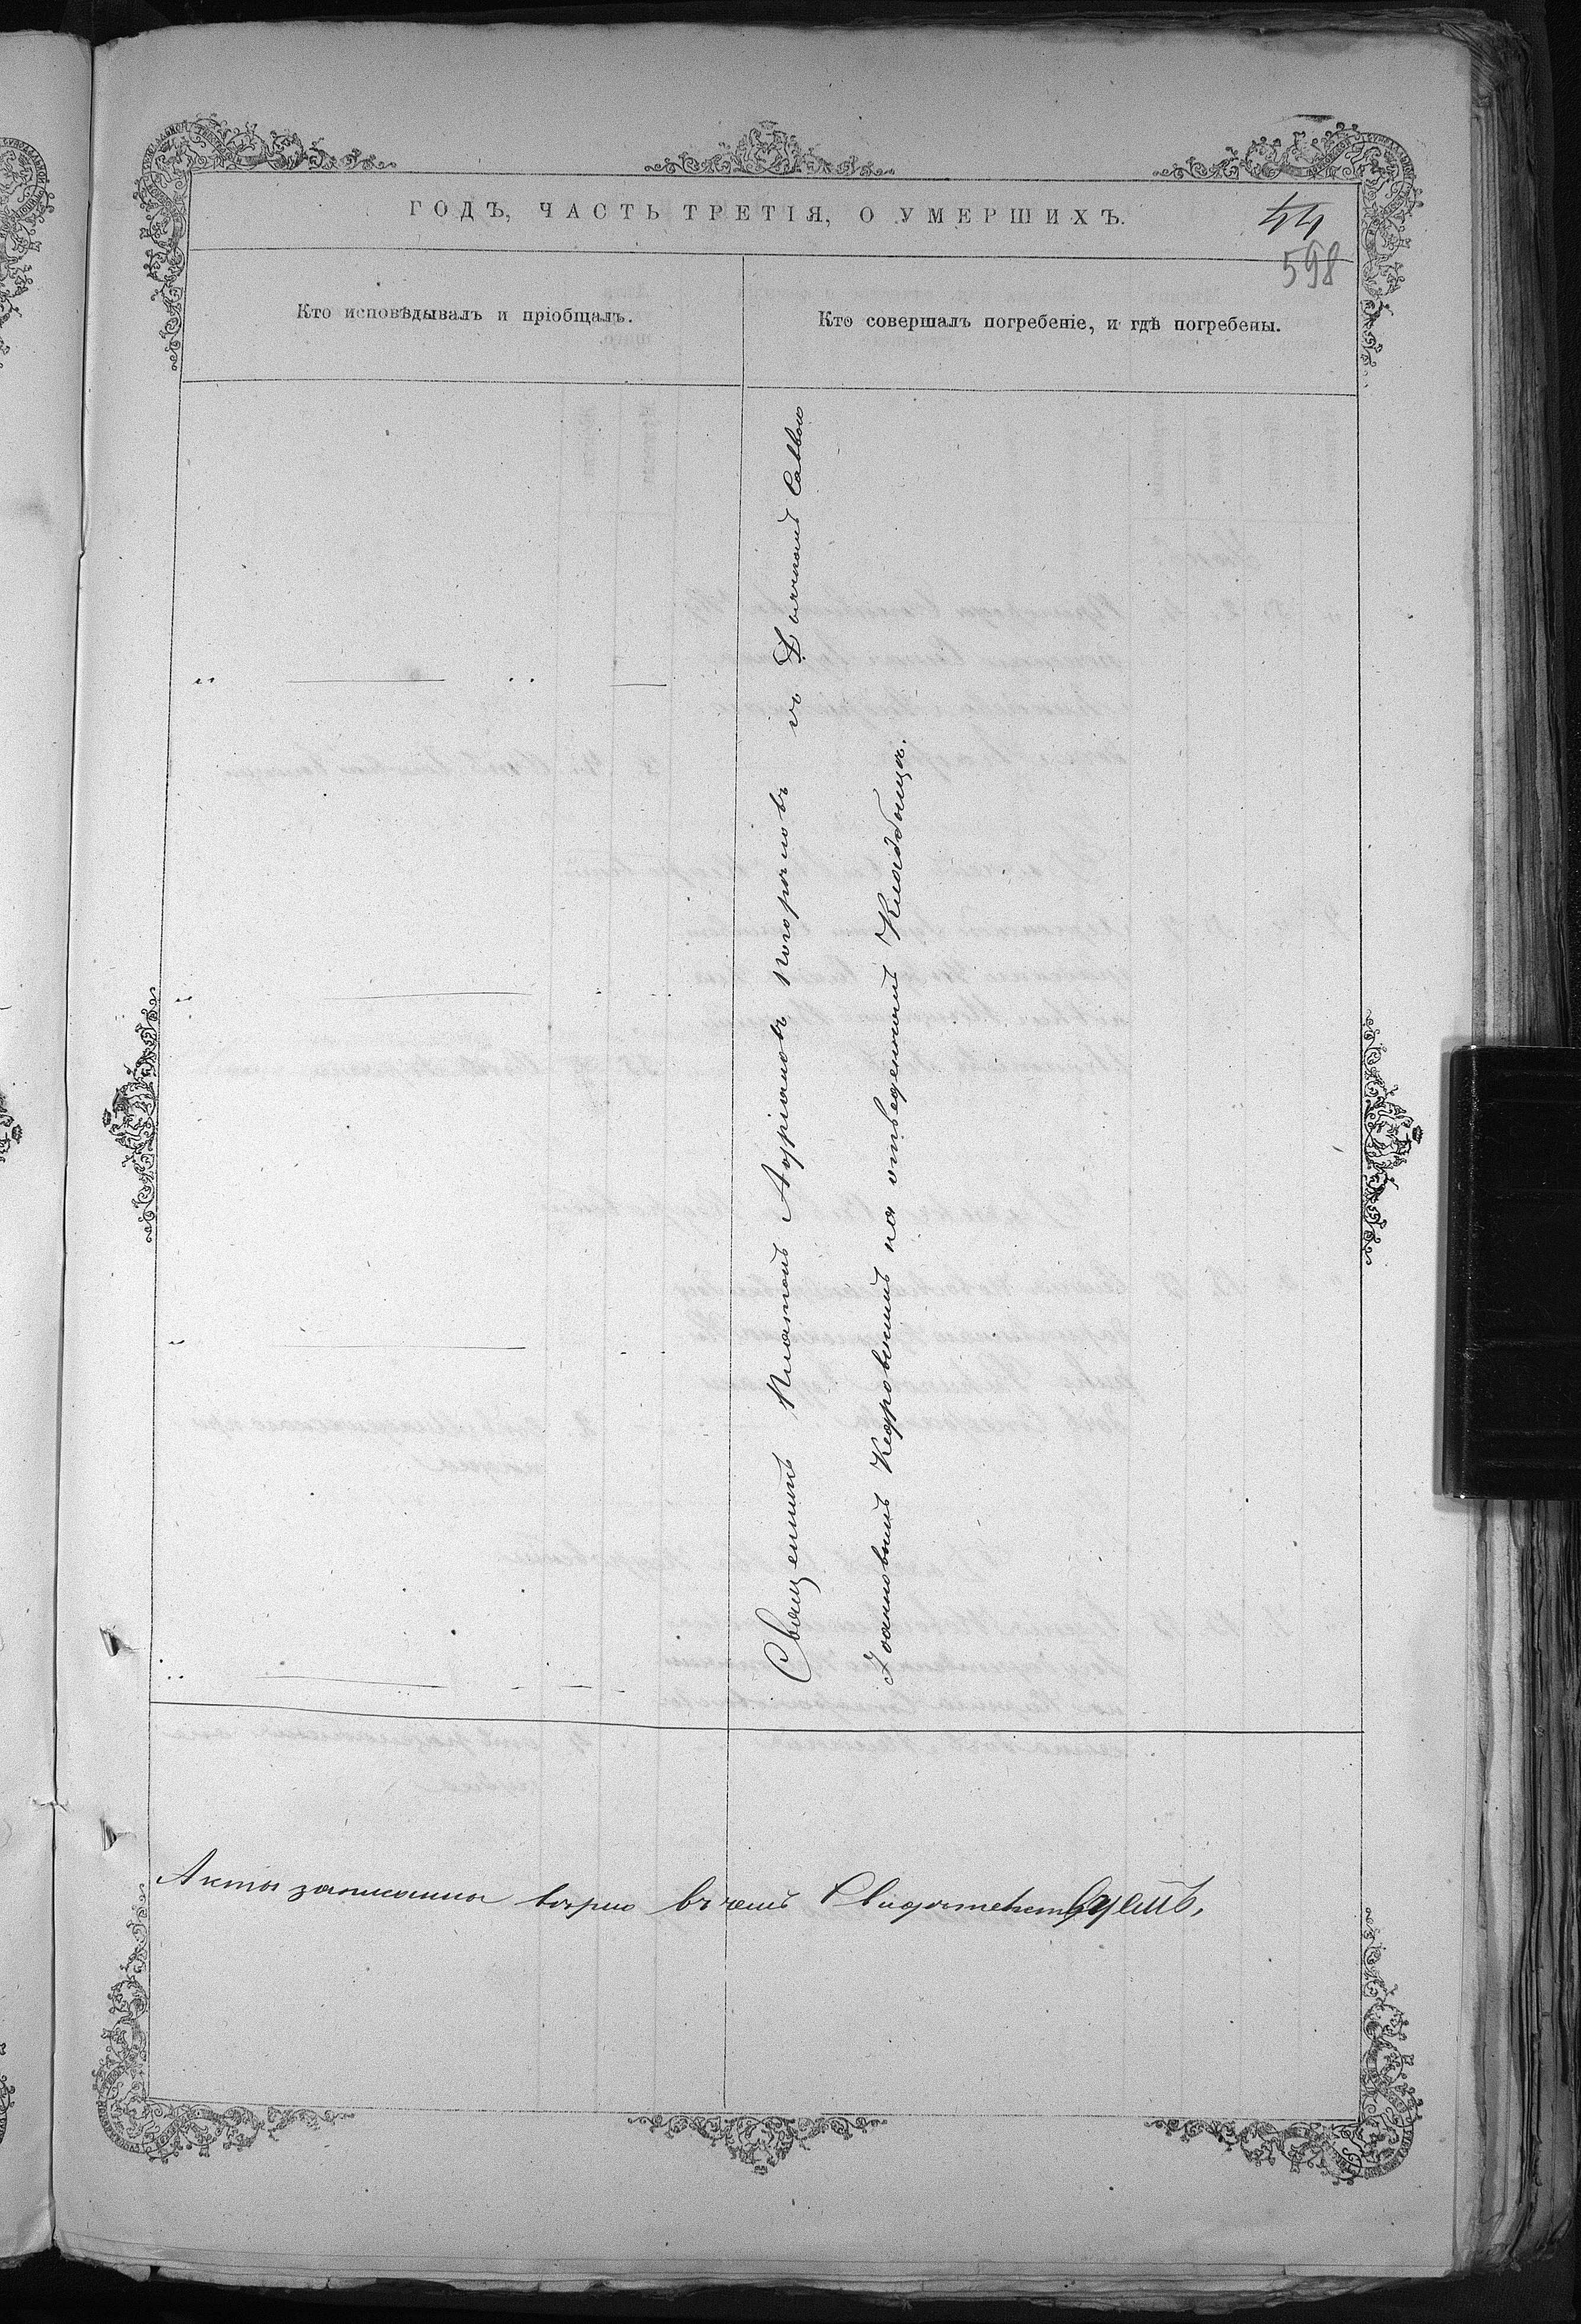 ГОДЪ, ЧАСТЬ ТРЕТІЯ, О УМЕРШИХЪ.
44
598
Кто исповѣдывалъ и пріобщалъ.
Кто совершалъ погребеніе, и гдѣ погребены.
Священникъ Платонъ Адріановъ съ Дьячкомъ Саввою
Іоанновымъ Кедровскимъ на отведенномъ Кладбищѣ.
Акты записанны вѣрно въ чемъ Свидѣтельствуемъ,